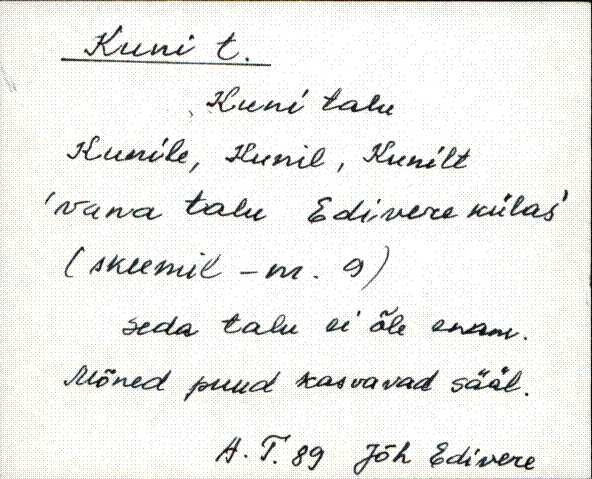 Kuni t.
Kuni talu
Kunile, Kunil, Kunilt
'vana talu Edivere külas'
(skeemil - nr. 9)
seda talu ei õle enam.
Mõned puud kasvavad sääl.
A. T. 89 Jõh Edivere